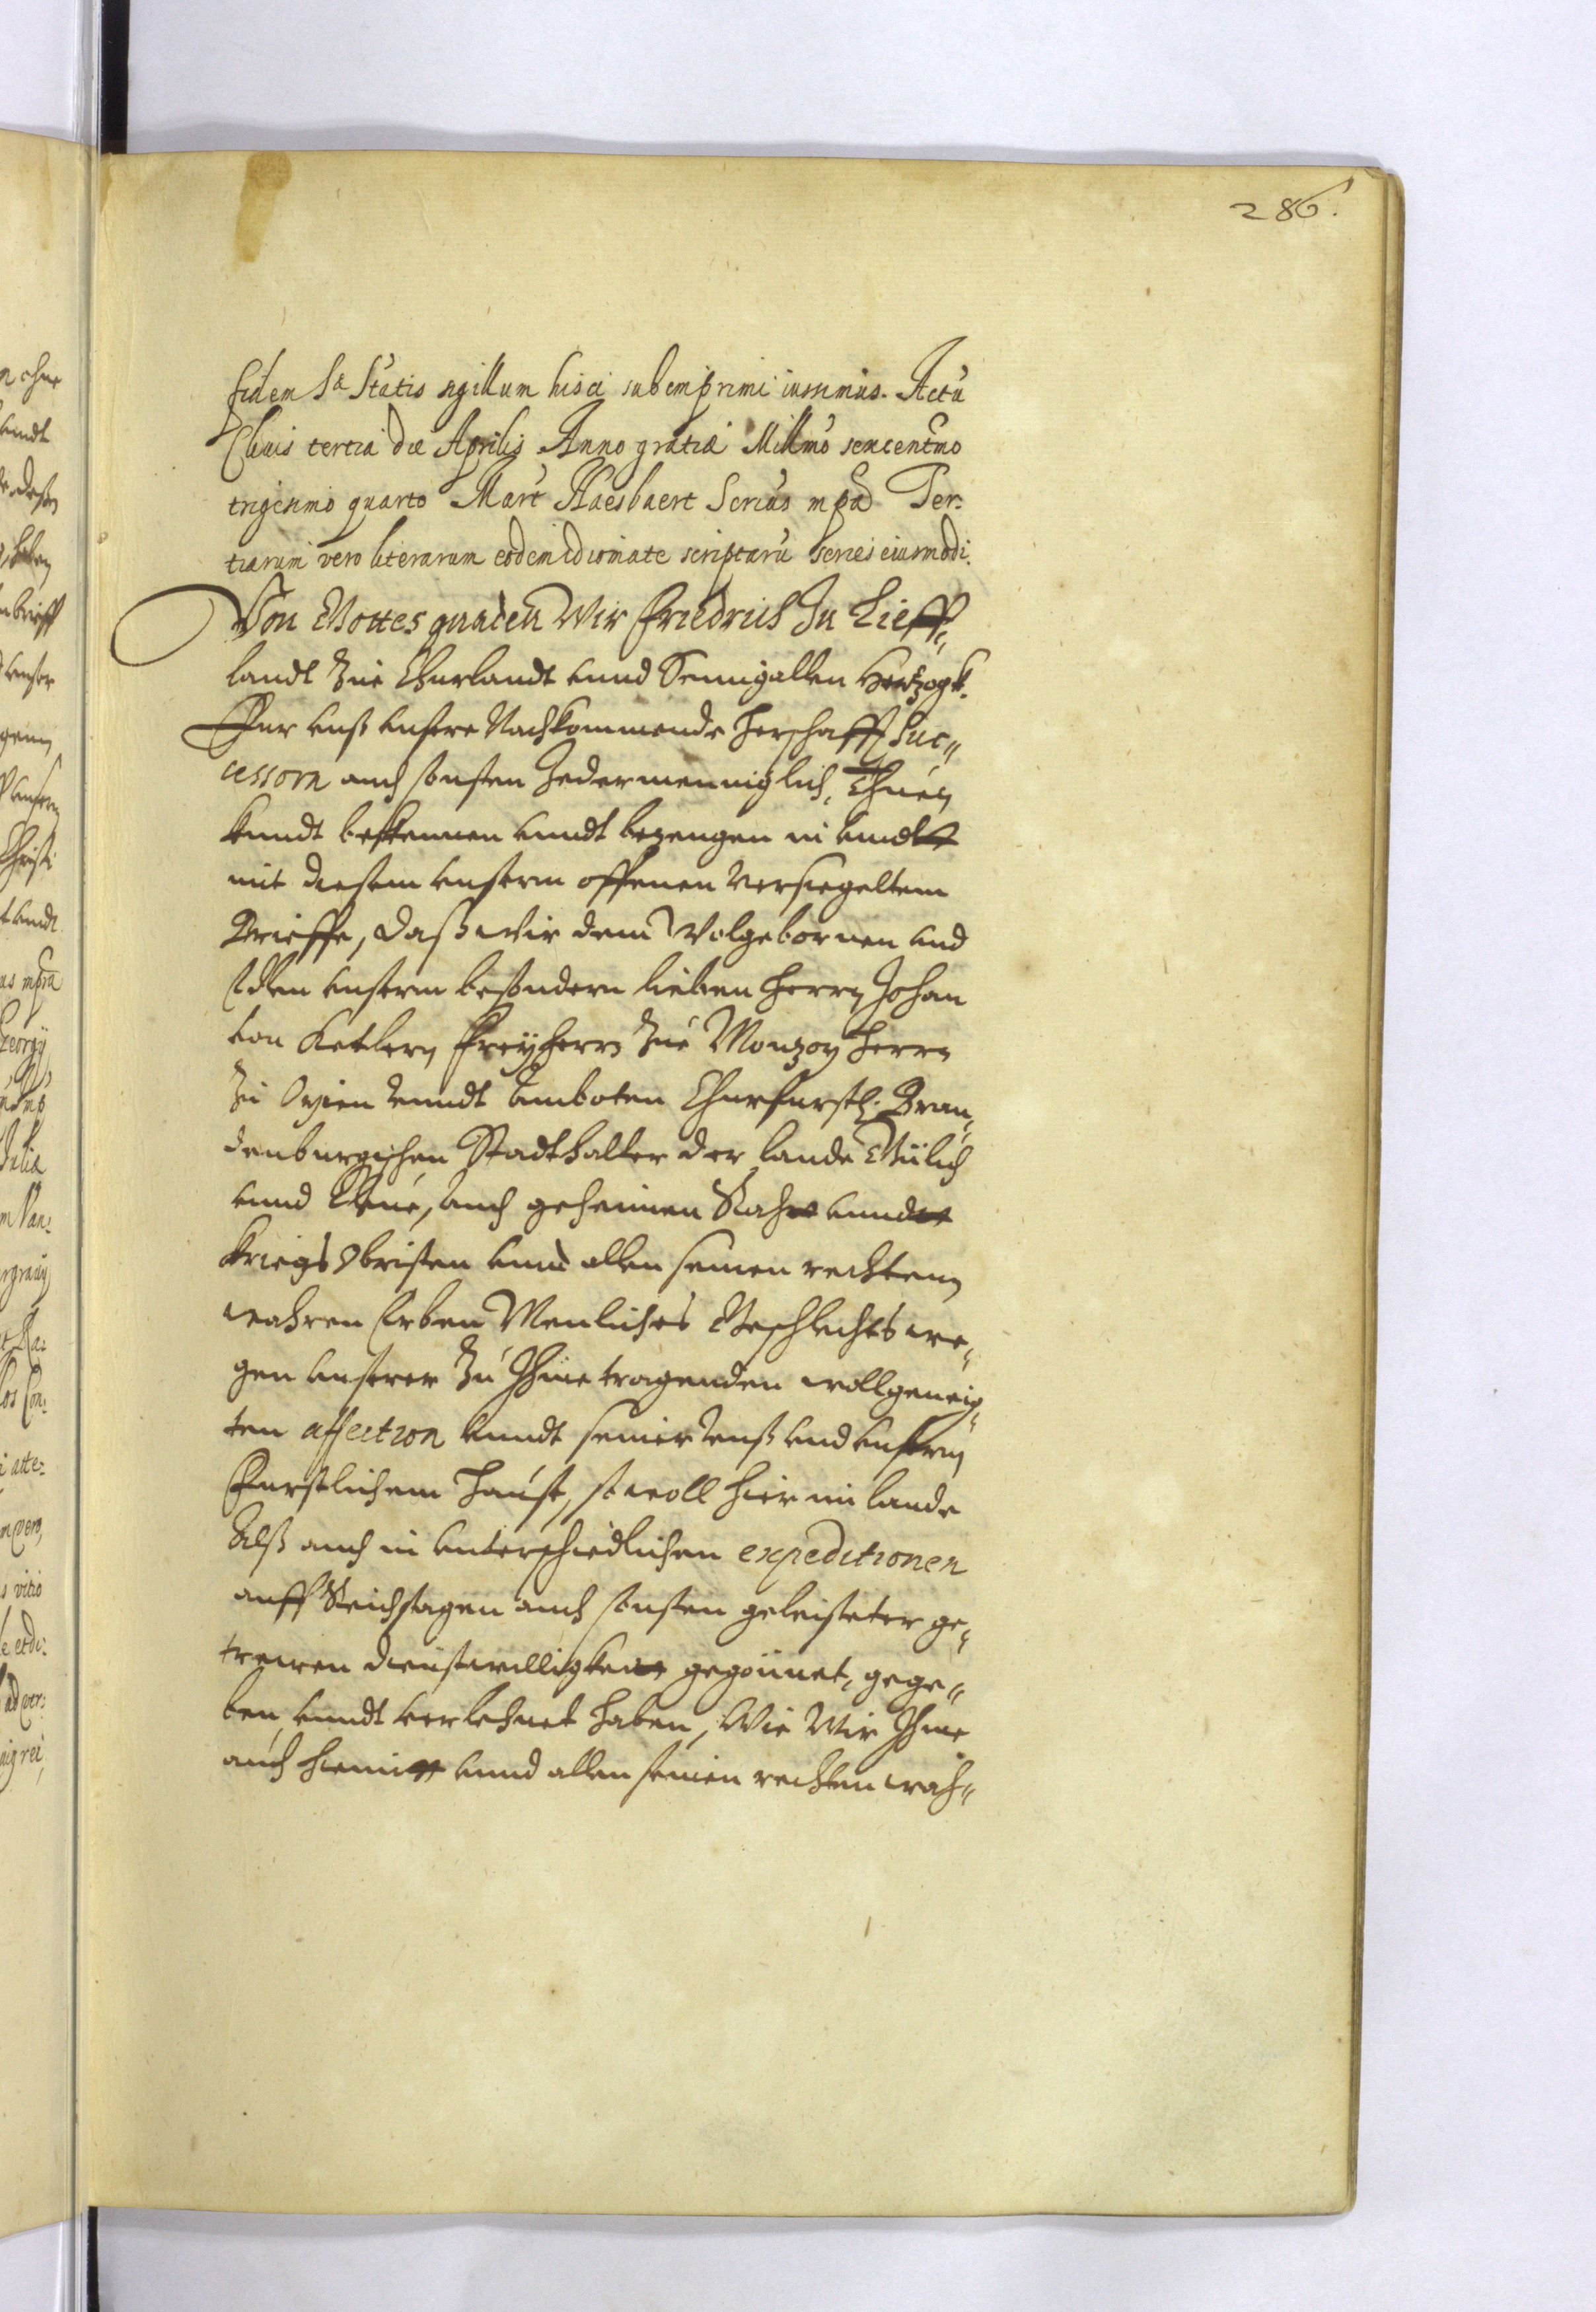 286.
fidem Sa Statis sigillum hisci subimprimi iussimus. Actu
Clivis tertia die Aprilis Anno gratia Millmo sexcentmo
trigesimo quarto Mart Haesbaert Scrius mpa Ter:
tiarum vero literarum eodem idiomate scriptaru series eiusmodi.
Von Gottes gnaden Wir Friedrich In Lieff„
landt Zue Churlandt unnd Semigallen Hertzogk.
Fur unß unsere Nachkommende Herschafft Suc„
cessorn auch sonsten Jedermenniglich, Thuen
kundt bekennen unndt bezeugen in undt
mit diesem unserm offenen versiegeltem
Brieffe, daß wir dem Wolgebornen und
Edlen unserm besondern lieben Herrn Johan
von Ketlern Freyherrn Zue Monzoy Herrn
Zu unndt Amboten Churfurstl. Bran„
denburgischen Stadthalter der lande Gülich
unnd Cleve, auch geheimen Rahtt unndt
Kriegs Obristen unnd allen seinen rechtenn
wahren Erben Menliches Geschlechts we„
gen unserer Zu Ihme tragenden wollgeneig„
ten affection unndt seiner unß und unserm
Furstlichem Hause, so woll hier im lande
Alß auch in unterschiedlichen expeditionen
auff Reichstagen auch sonsten geleisteter ge„
trewen dienstwilligkeit gegönnet, gege„
ben unndt verlehnet haben, Wie Wir Ihme
auch hiemitt unnd allen seinen rechten wah„
ohne
unndt
unser
Christi
undt
mpra
Georgij
Julia
Van:
vero,
vitio
ad ver: